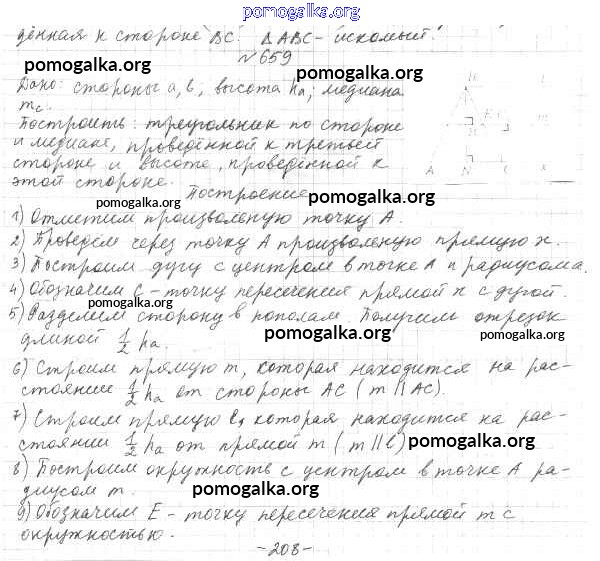 pomogalka.org
дённая к стороне BC. ΔABC - искомый.
N 659
pomogalka.org pomogalka.org
Дано: стороны a, b, высота ha; медиана
mc.
Построить: треугольник по стороне
и медиане, проведённой к третьей
стороне и высоте, проведённой к
этой стороне.
A N C x
Построение
pomogalka.org pomogalka.org
1) Отметим произвольную точку A.
2) Проведём через точку A произволную прямую x.
3) Построим дугу с центром в точке A и радиусом a.
4) Обозначим C - точку пересечения прямой x с дугой.
pomogalka.org
5) Разделим сторону в пополам. Получим отрезок
длиной 1/2 ha.
pomogalka.org pomogalka.org
6) Строим прямую m, которая находится на рас-
стоянии 1/2 ha от стороны AC (m || AC).
7) Строим прямую l, которая находится на рас-
стоянии 1/2 ha от прямой m (m || l)
pomogalka.org
8) Построим окружность с центром в точке A ра-
диусом m.
pomogalka.org
9) Обозначим E - точку пересечения прямой m с
окружностью.
- 208 -